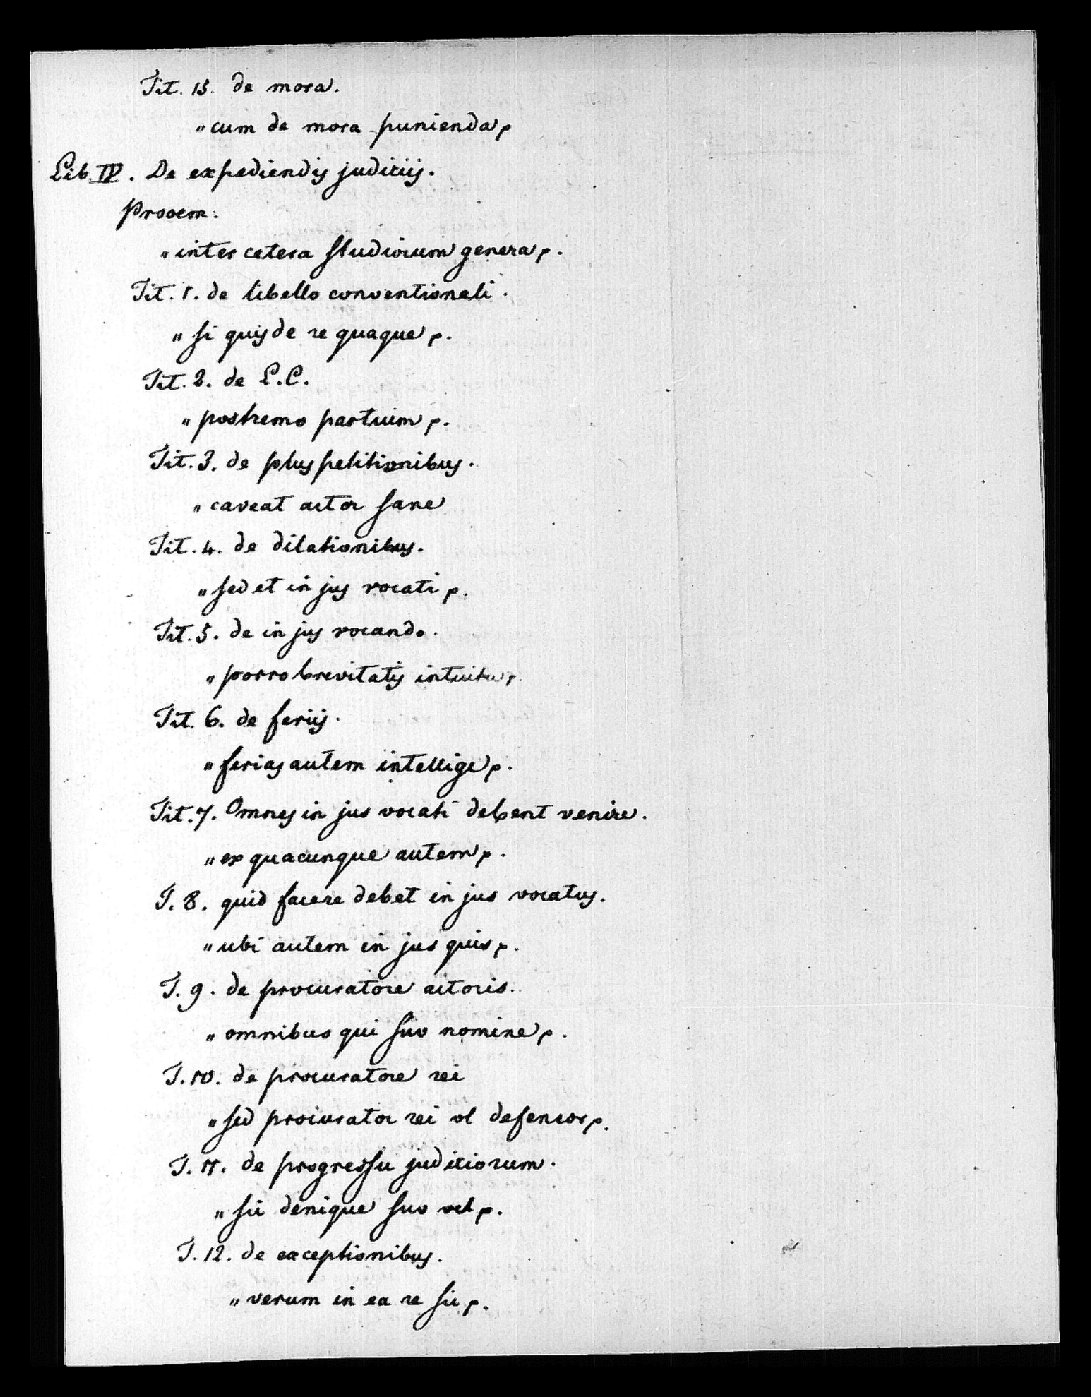 Tit. 15. de mora.
„cum de mora punienda p
Lib IV. De expediendis judiciis.
Prooem:
„inter cetera studiorum genera p.
Tit. 1. de libello conventionali.
„si quis de re quaque p.
Tit. 2. de L.C.
„postremo partium p.
Tit. 3. de pluspetitionibus.
„caveat actor sane
Tit. 4. de dilationibus.
„sed et in jus vocati p.
Tit. 5. de in jus vocando.
„porro brevitatis intuitu p
Tit. 6. de feriis.
„ferias autem intellige p.
Tit. 7. Omnes in jus vocati debent venire.
„ex quacunque autem p.
T. 8. quid facere debet in jus vocatus.
„ubi autem in jus quis p.
T. 9. de procuratore actoris.
„omnibus qui suo nomine p.
T. 10. de procuratore rei
„sed procurator rei vl defensor p.
T. 11. de progressu judiciorum.
„sic denique suo vel p.
T. 12. de exceptionibus.
„verum in ea re sic p.